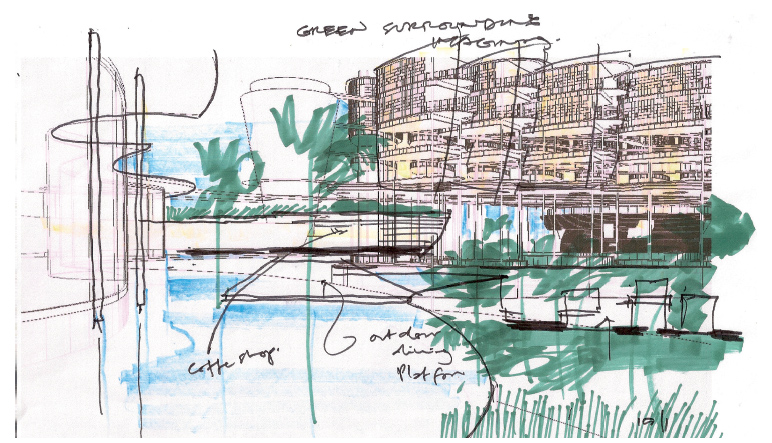 GREEN SURROUNDING
IMAGING.
Coffee shop.
outdoor
dining
Platform